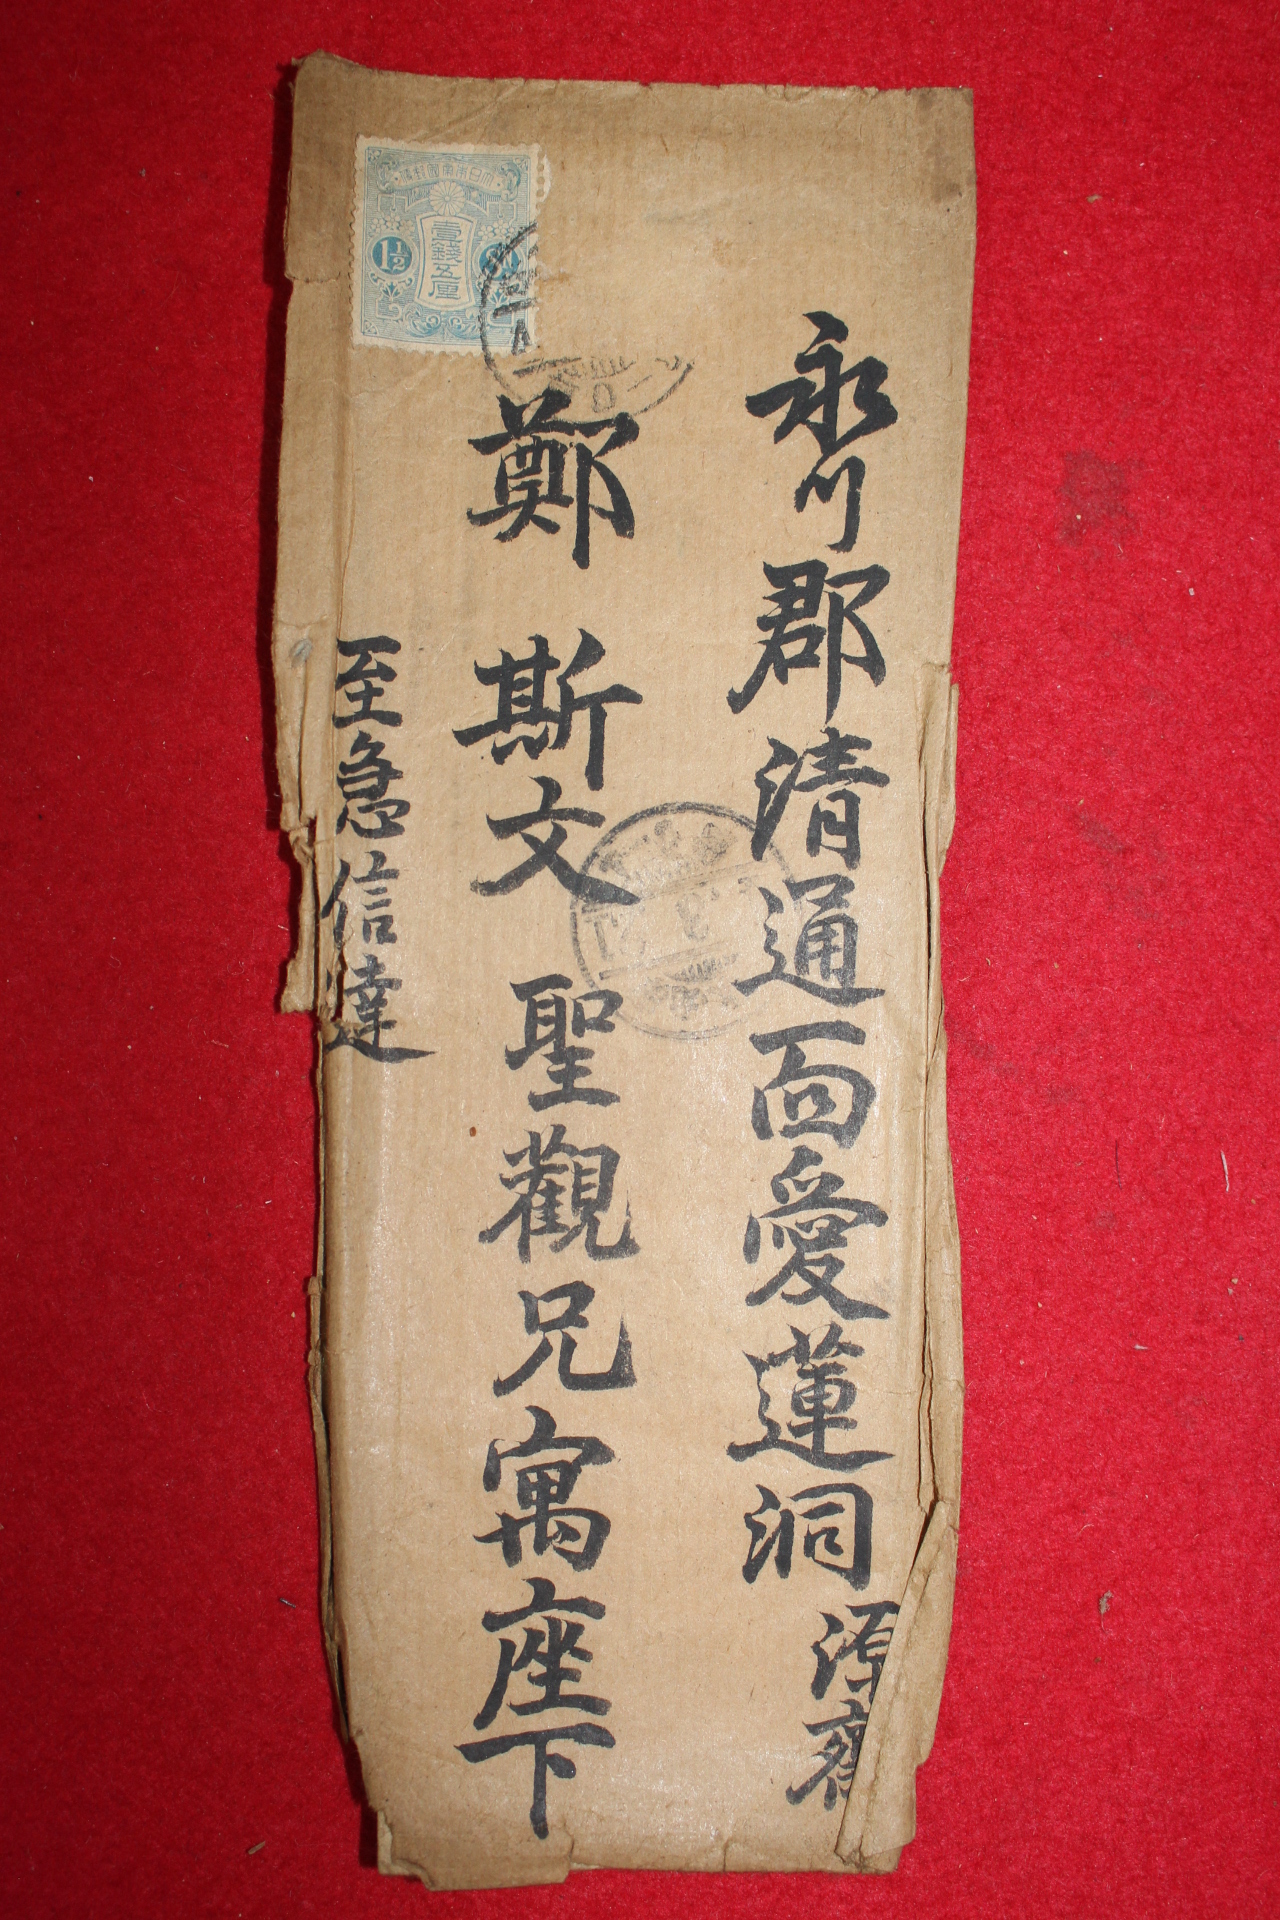 永川郡清通面愛蓮洞 源齋
鄭 斯文 聖觀兄寓座下
至急信達
大日本帝國郵便
壹錢五厘
1½